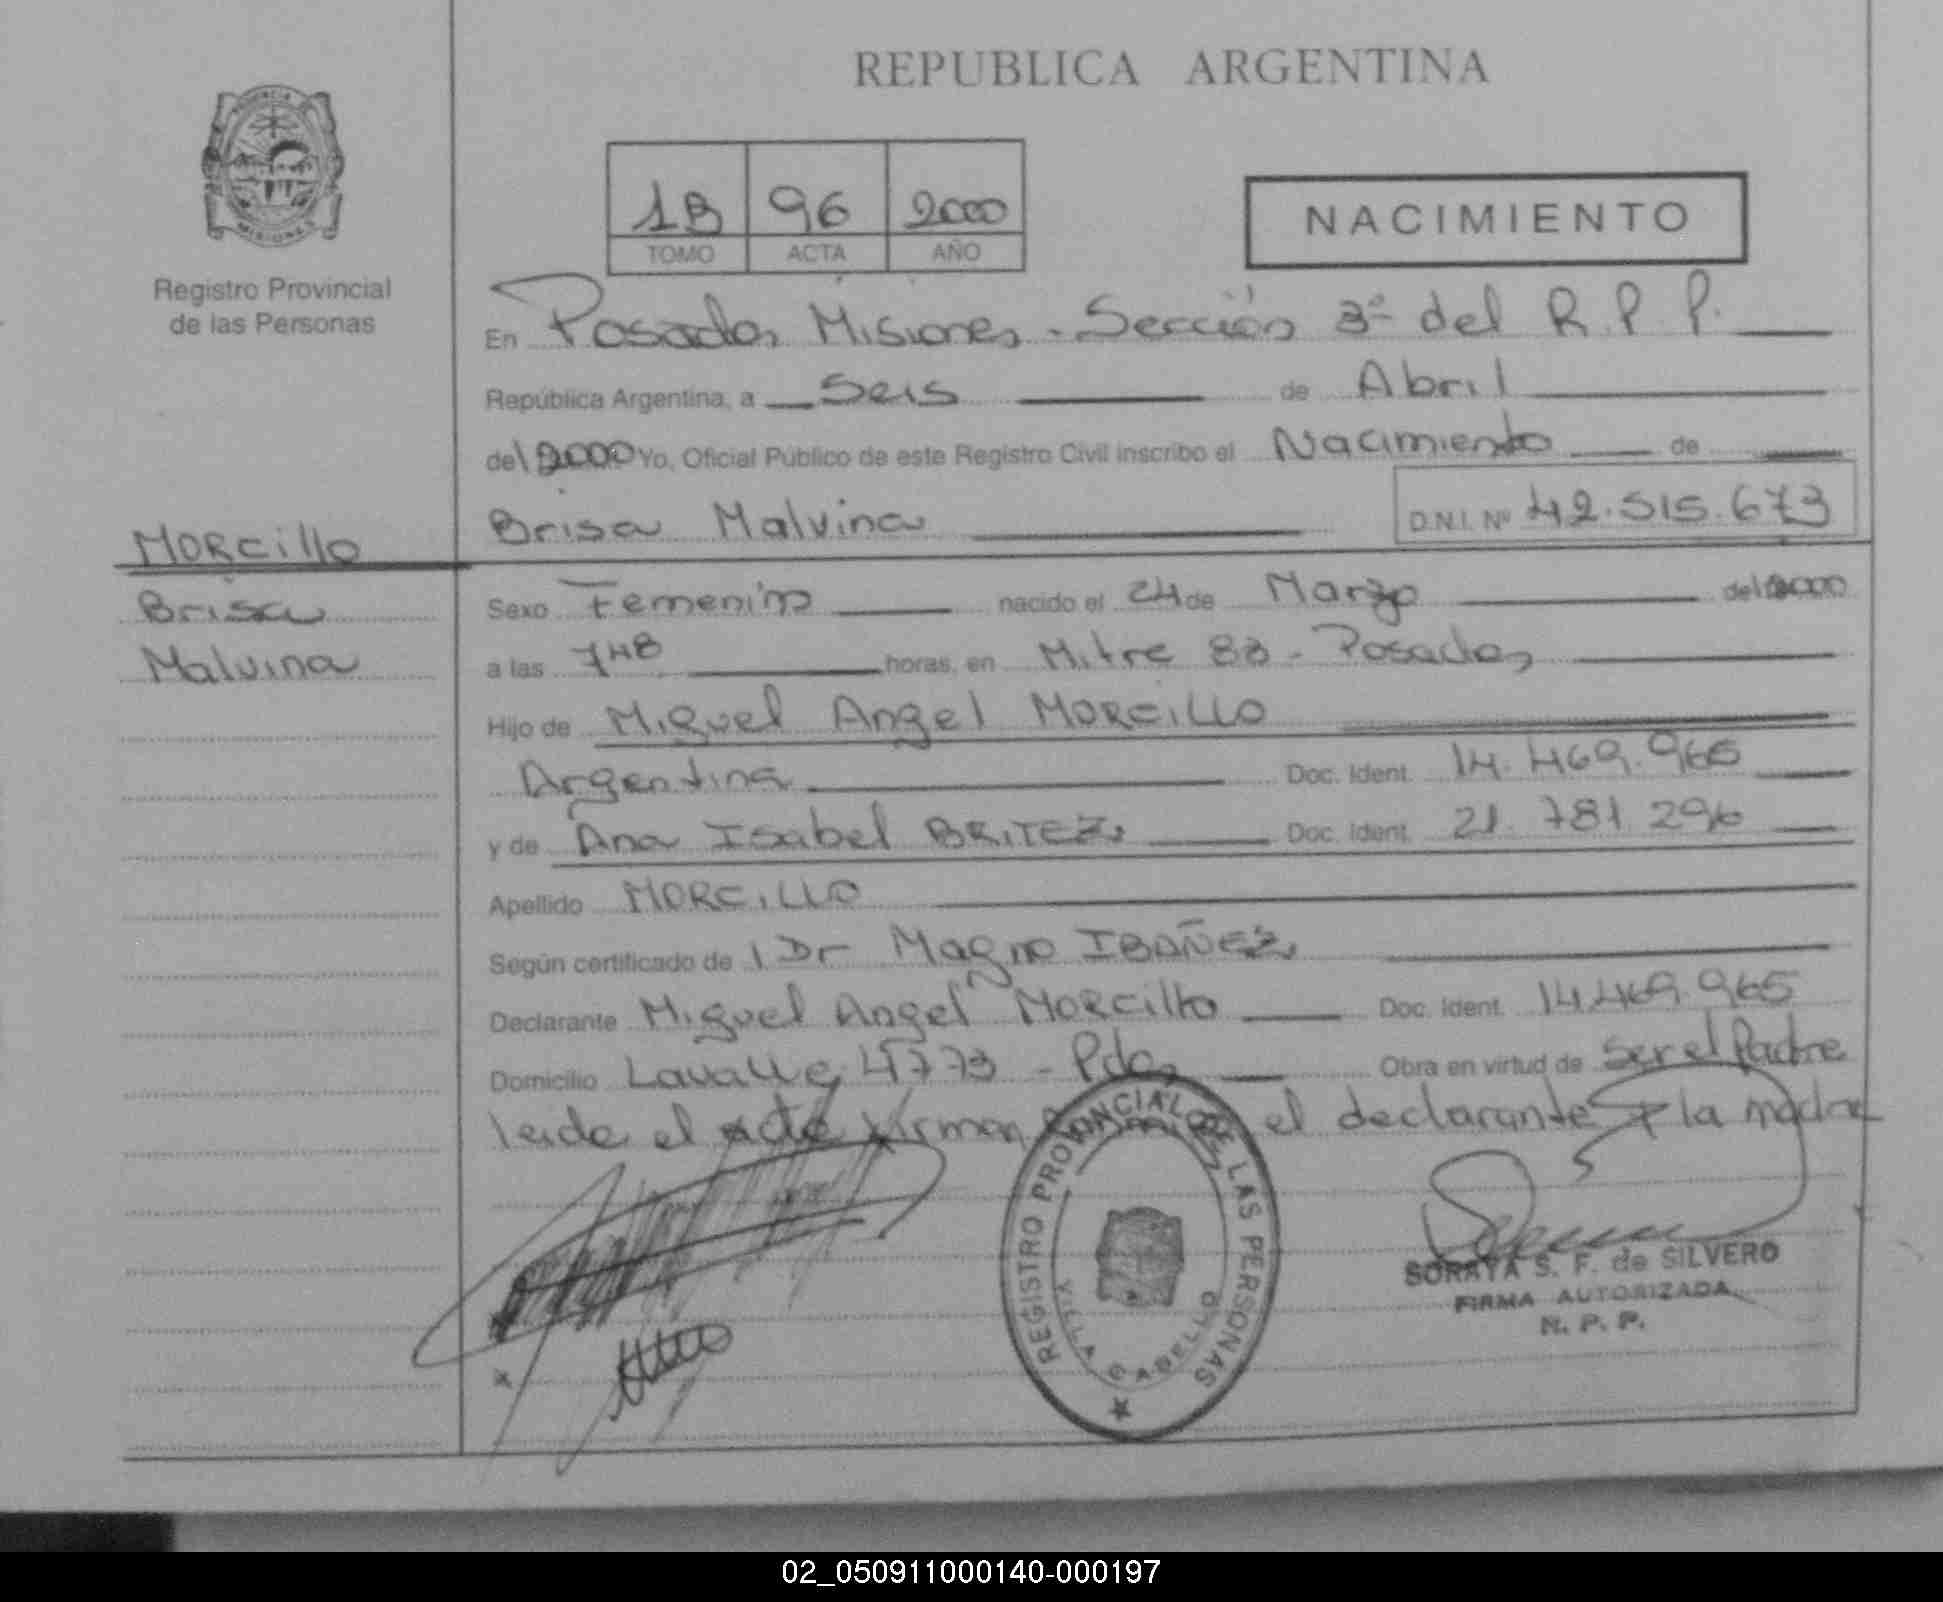 REPUBLICA ARGENTINA
PROVINCIA
MISIONES
Registro Provincial
de las Personas
1B 96 2000
TOMO ACTA AÑO
NACIMIENTO
En Posadas Misiones - Sección 3ª del R.P.P.
República Argentina, a Seis de Abril
del 2000 Yo, Oficial Público de este Registro Civil inscribo el Nacimiento de
Brisa Malvina D.N.I. Nº 42.515.673
MORCillo
Brisa
Malvina
Sexo Femenino nacido el 24 de Marzo del 2000
a las 7 48 horas, en Mitre 83 - Posadas
Hijo de Miguel Angel MORCILLO
Argentina Doc. Ident. 14.469.965
y de Ana Isabel BRITEZ Doc. Ident. 21.781 296
Apellido MORCILLO
Según certificado de 1 Dr Magno IBAÑEZ
Declarante Miguel Angel MORCillo Doc. Ident. 14.469.965
Domicilio Lavalle 4773 - Pdas Obra en virtud de Ser el Padre
leida el acta firman el declarante y la madre
REGISTRO PROVINCIAL DE LAS PERSONAS
VILLA CABELLO
SORAYA S. F. de SILVERO
FIRMA AUTORIZADA
R. P. P.
02_050911000140-000197